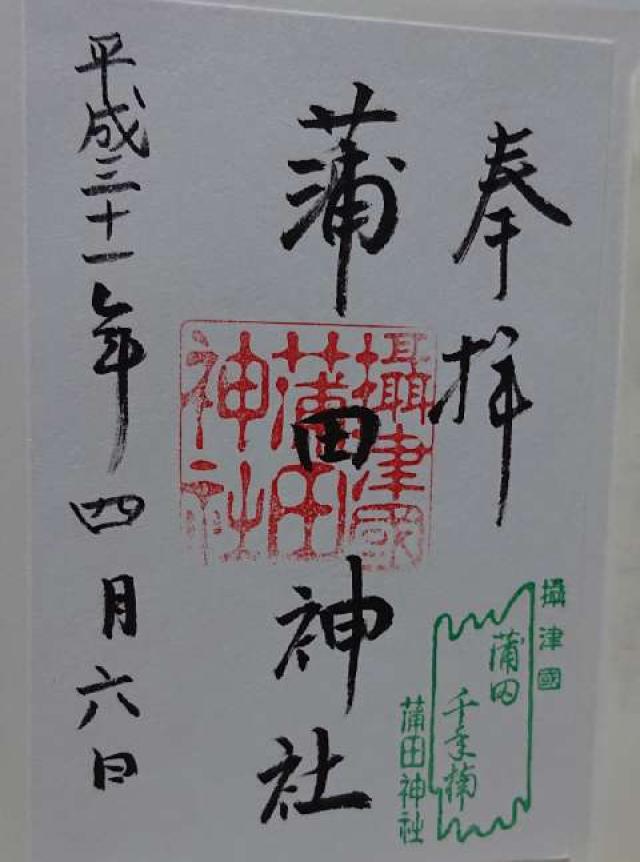 奉拝
蒲田神社
攝津國
蒲田
神社
平成三十一年四月六日
攝津國
蒲田
千年楠
蒲田神社